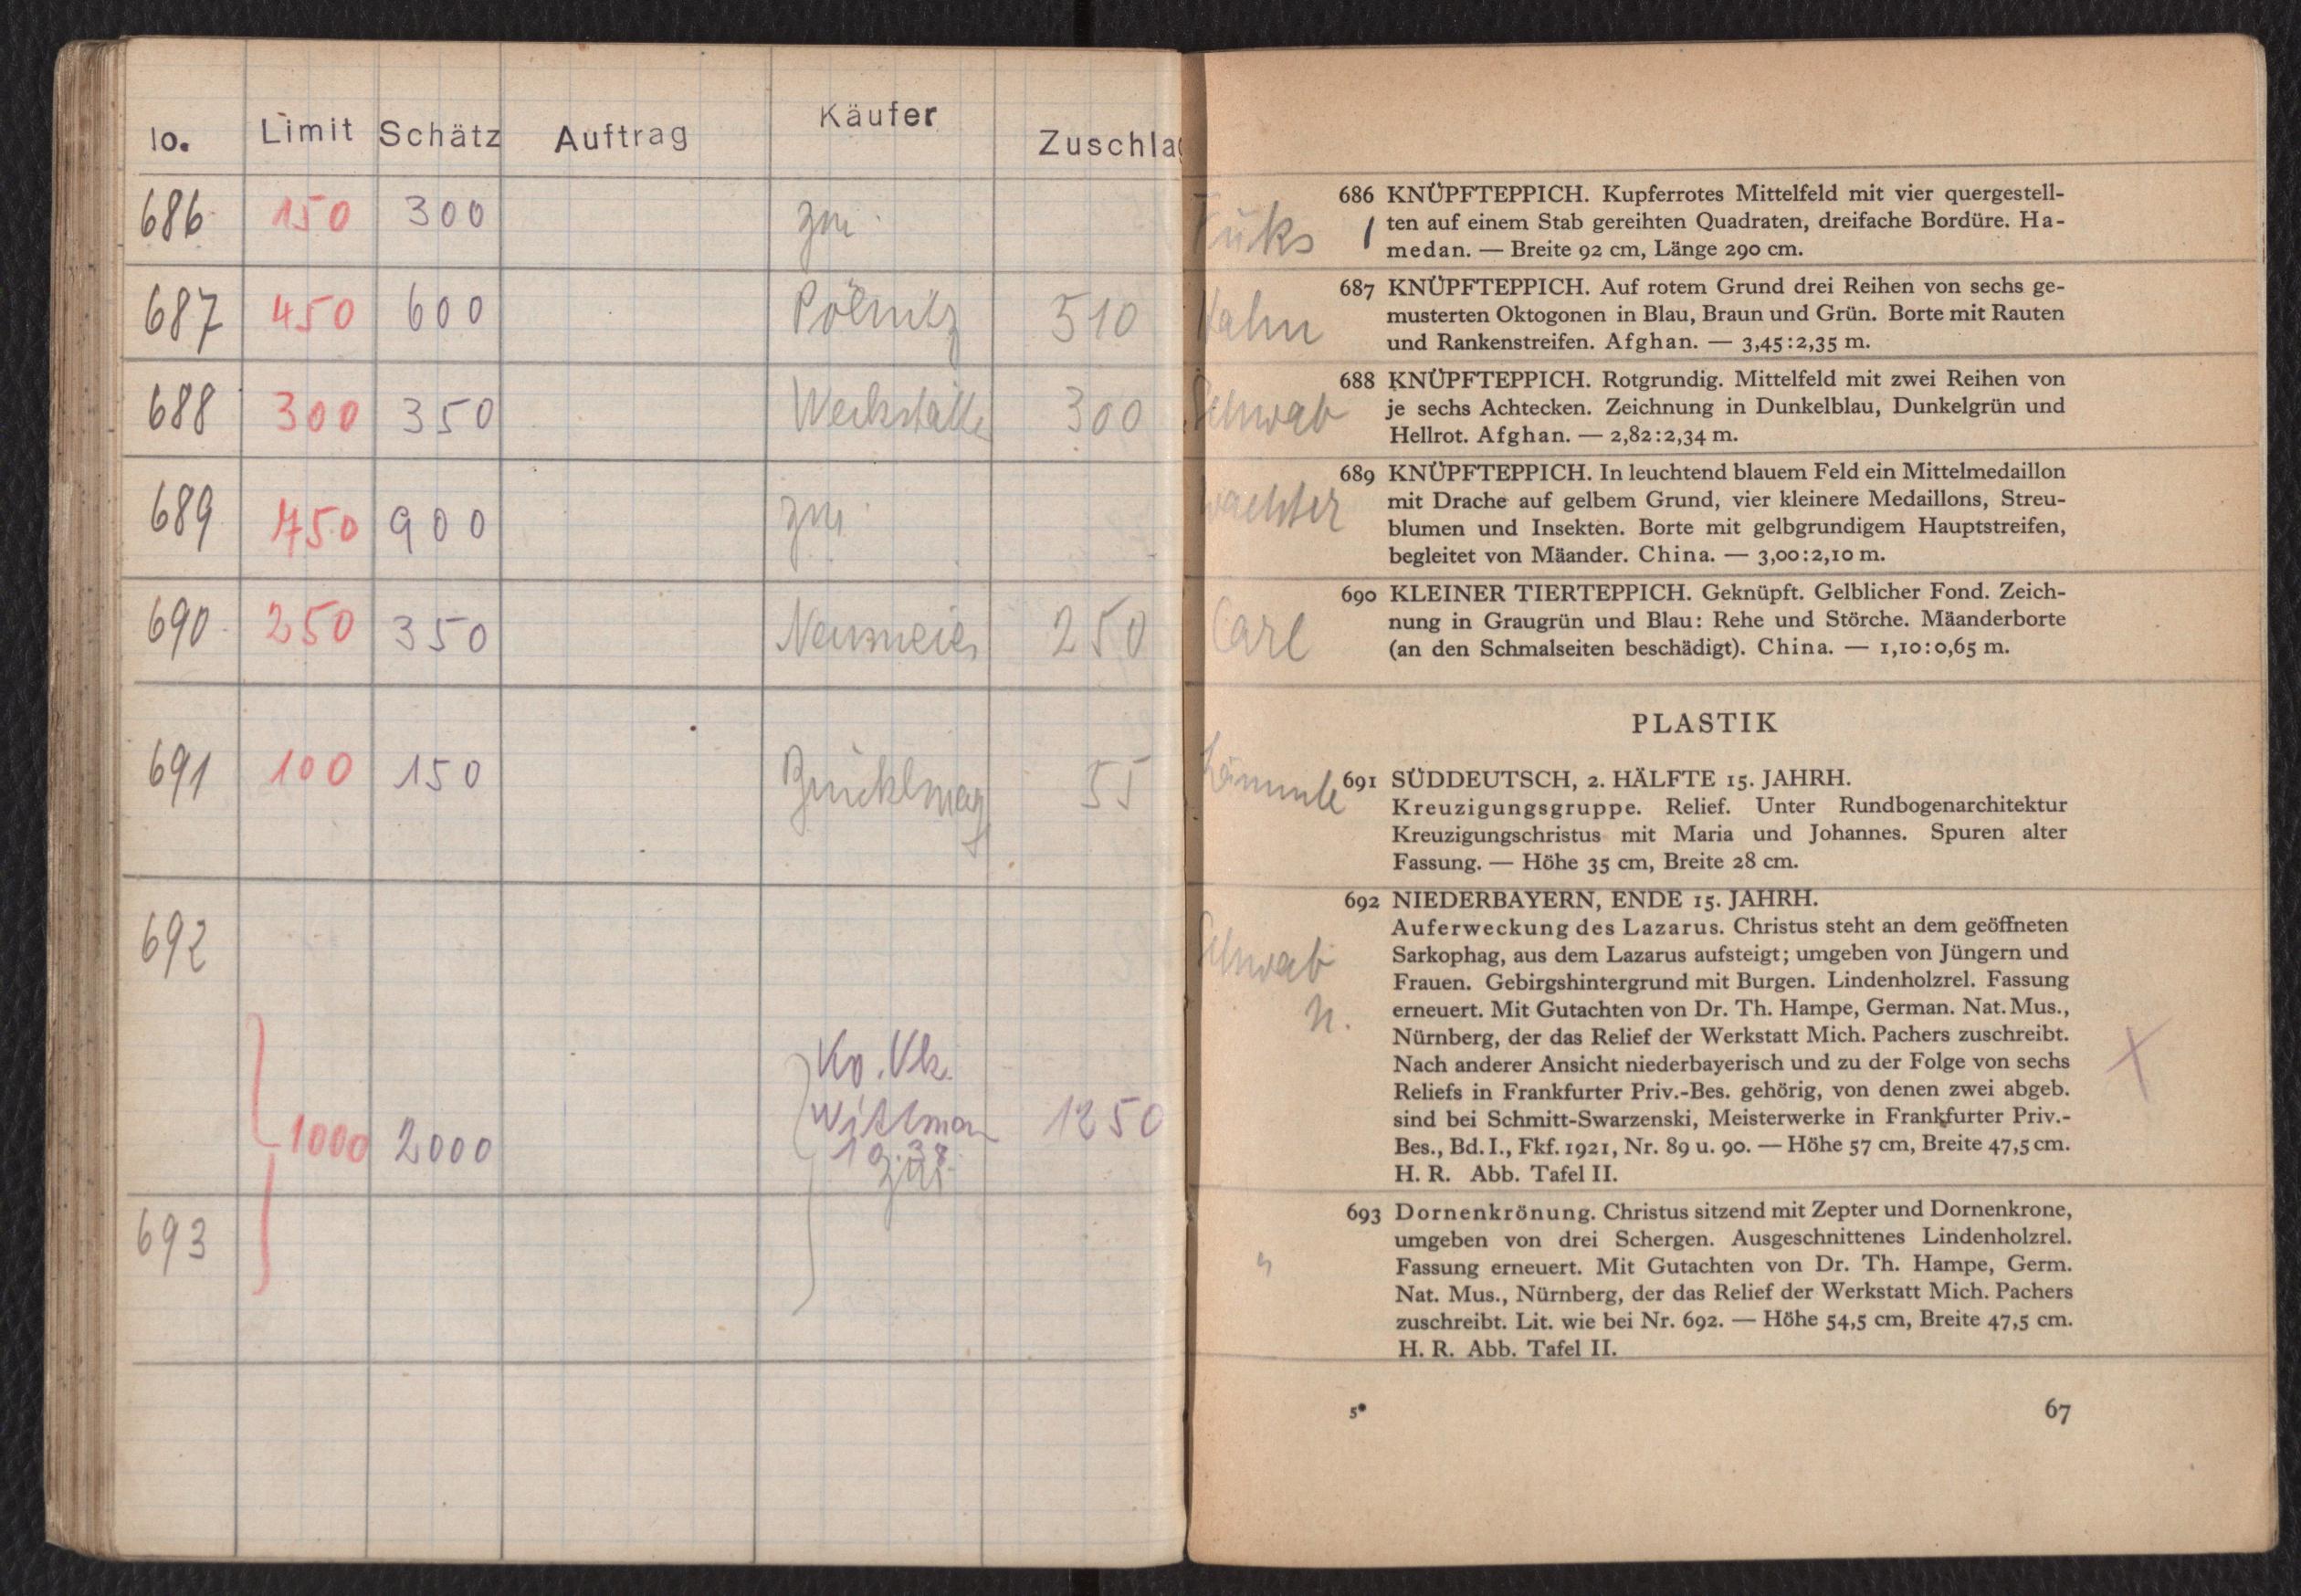 lo. Limit Schätz Auftrag Käufer Zuschla
686 150 300 zur
687 450 600 Pölnitz 510
688 300 350 Werkstätte 300
689 750 900 zur
690 250 350 Neumeier 250
691 100 150 Brücklmay 55
692
Ko. Vk.
1000 2000 1250
19.38
zur
693
Fuks
686 KNÜPFTEPPICH. Kupferrotes Mittelfeld mit vier quergestell-
ten auf einem Stab gereihten Quadraten, dreifache Bordüre. Ha-
medan. — Breite 92 cm, Länge 290 cm.
Hahn
687 KNÜPFTEPPICH. Auf rotem Grund drei Reihen von sechs ge-
musterten Oktogonen in Blau, Braun und Grün. Borte mit Rauten
und Rankenstreifen. Afghan. — 3,45:2,35 m.
Schwab
688 KNÜPFTEPPICH. Rotgrundig. Mittelfeld mit zwei Reihen von
je sechs Achtecken. Zeichnung in Dunkelblau, Dunkelgrün und
Hellrot. Afghan. — 2,82:2,34 m.
Wachter
689 KNÜPFTEPPICH. In leuchtend blauem Feld ein Mittelmedaillon
mit Drache auf gelbem Grund, vier kleinere Medaillons, Streu-
blumen und Insekten. Borte mit gelbgrundigem Hauptstreifen,
begleitet von Mäander. China. — 3,00:2,10 m.
Carl
690 KLEINER TIERTEPPICH. Geknüpft. Gelblicher Fond. Zeich-
nung in Graugrün und Blau: Rehe und Störche. Mäanderborte
(an den Schmalseiten beschädigt). China. — 1,10:0,65 m.
PLASTIK
Lämmle
691 SÜDDEUTSCH, 2. HÄLFTE 15. JAHRH.
Kreuzigungsgruppe. Relief. Unter Rundbogenarchitektur
Kreuzigungschristus mit Maria und Johannes. Spuren alter
Fassung. — Höhe 35 cm, Breite 28 cm.
692 NIEDERBAYERN, ENDE 15. JAHRH.
Auferweckung des Lazarus. Christus steht an dem geöffneten
Schwab
Sarkophag, aus dem Lazarus aufsteigt; umgeben von Jüngern und
Frauen. Gebirgshintergrund mit Burgen. Lindenholzrel. Fassung
n.
erneuert. Mit Gutachten von Dr. Th. Hampe, German. Nat. Mus.,
Nürnberg, der das Relief der Werkstatt Mich. Pachers zuschreibt.
Nach anderer Ansicht niederbayerisch und zu der Folge von sechs
Reliefs in Frankfurter Priv.-Bes. gehörig, von denen zwei abgeb.
sind bei Schmitt-Swarzenski, Meisterwerke in Frankfurter Priv.-
Bes., Bd. I., Fkf. 1921, Nr. 89 u. 90. — Höhe 57 cm, Breite 47,5 cm.
H. R. Abb. Tafel II.
693 Dornenkrönung. Christus sitzend mit Zepter und Dornenkrone,
umgeben von drei Schergen. Ausgeschnittenes Lindenholzrel.
Fassung erneuert. Mit Gutachten von Dr. Th. Hampe, Germ.
Nat. Mus., Nürnberg, der das Relief der Werkstatt Mich. Pachers
zuschreibt. Lit. wie bei Nr. 692. — Höhe 54,5 cm, Breite 47,5 cm.
H. R. Abb. Tafel II.
5* 67